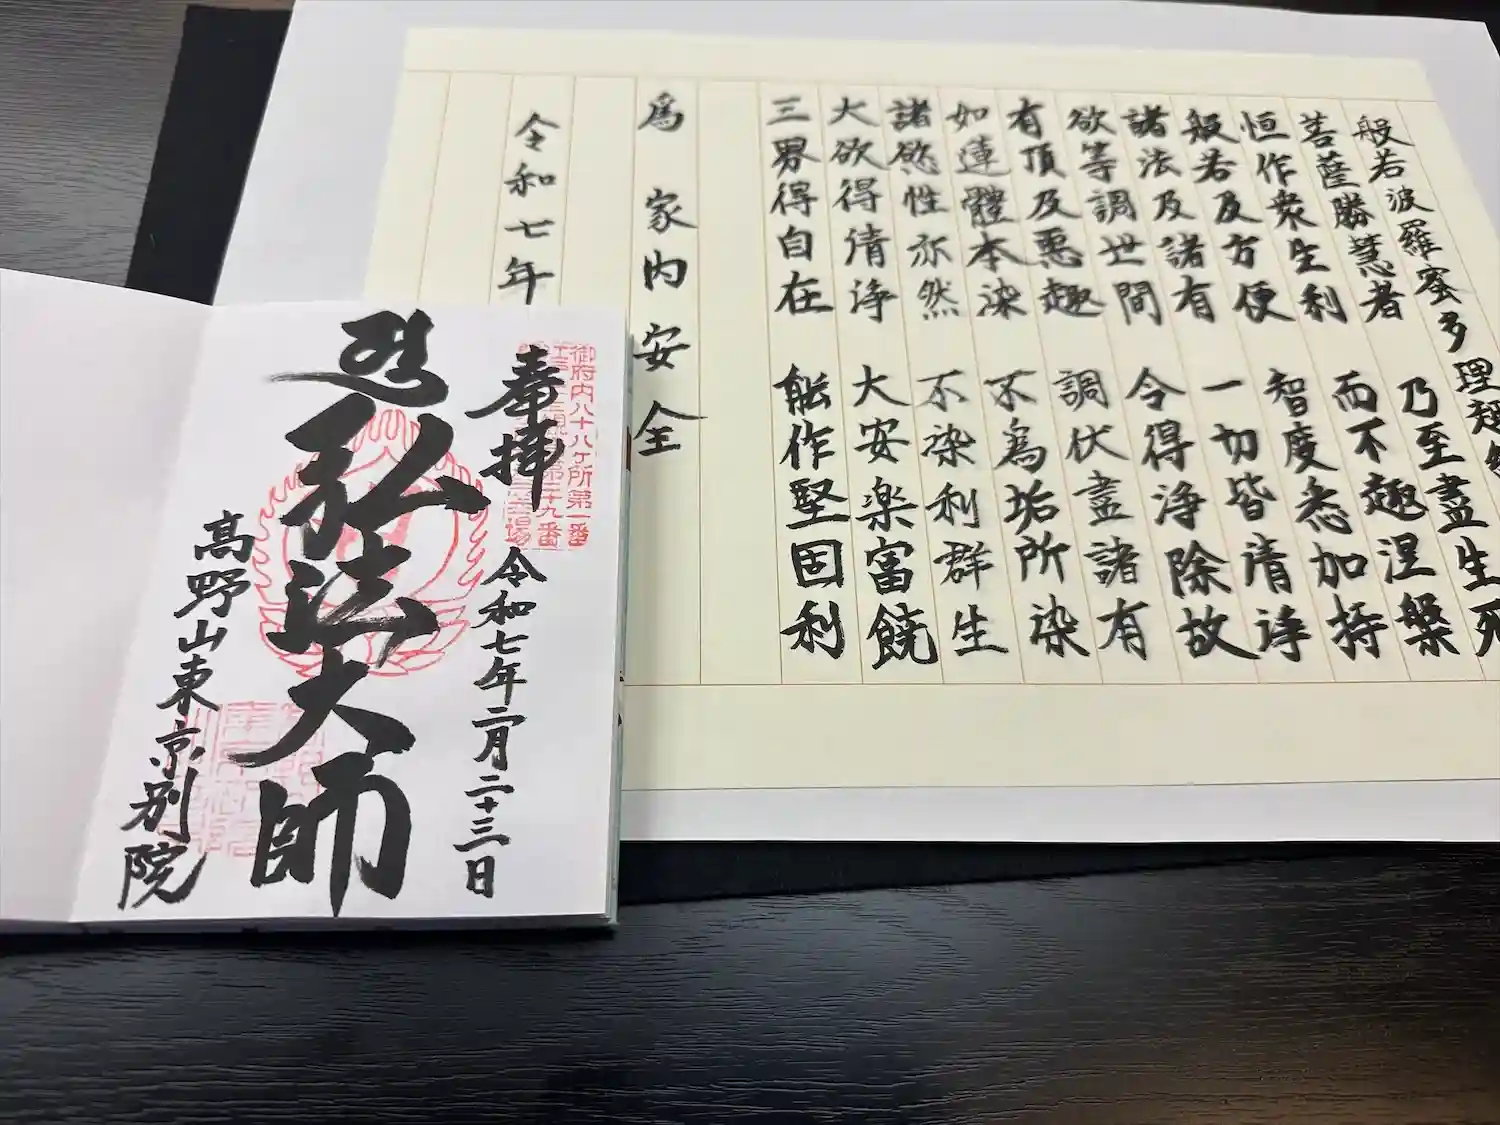 般若波羅蜜多理趣
菩薩勝慧者 乃至盡生死
恒作衆生利 而不趣涅槃
般若及方便 智度悉加持
諸法及諸有 一切皆清浄
欲等調世間 令得浄除故
有頂及悪趣 調伏盡諸有
如蓮體本染 不為垢所染
諸慾性亦然 不染利群生
大欲得清浄 大安楽富饒
三界得自在 能作堅固利
為 家内安全
令和七年
奉拝 令和七年二月二十三日
弘法大師
高野山東京別院
御府内八十八ヶ所第一番